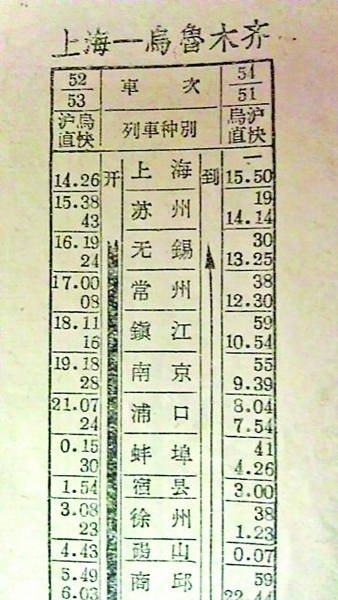 上海—烏魯木齐
52 車次 54
53 51
沪烏 列車种別 烏沪
直快 直快
14.26 开 上海 到 15.50
15.38 苏州 19
43 14.14
16.19 无錫 30
24 13.25
17.00 常州 38
08 12.30
18.11 鎮江 59
16 10.54
19.18 南京 55
28 9.39
21.07 浦口 8.04
24 7.54
0.15 蚌埠 41
30 4.26
1.54 宿县 3.00
3.08 徐州 38
23 1.23
4.43 碭山 0.07
5.49 商邱 59
6.03 22.44